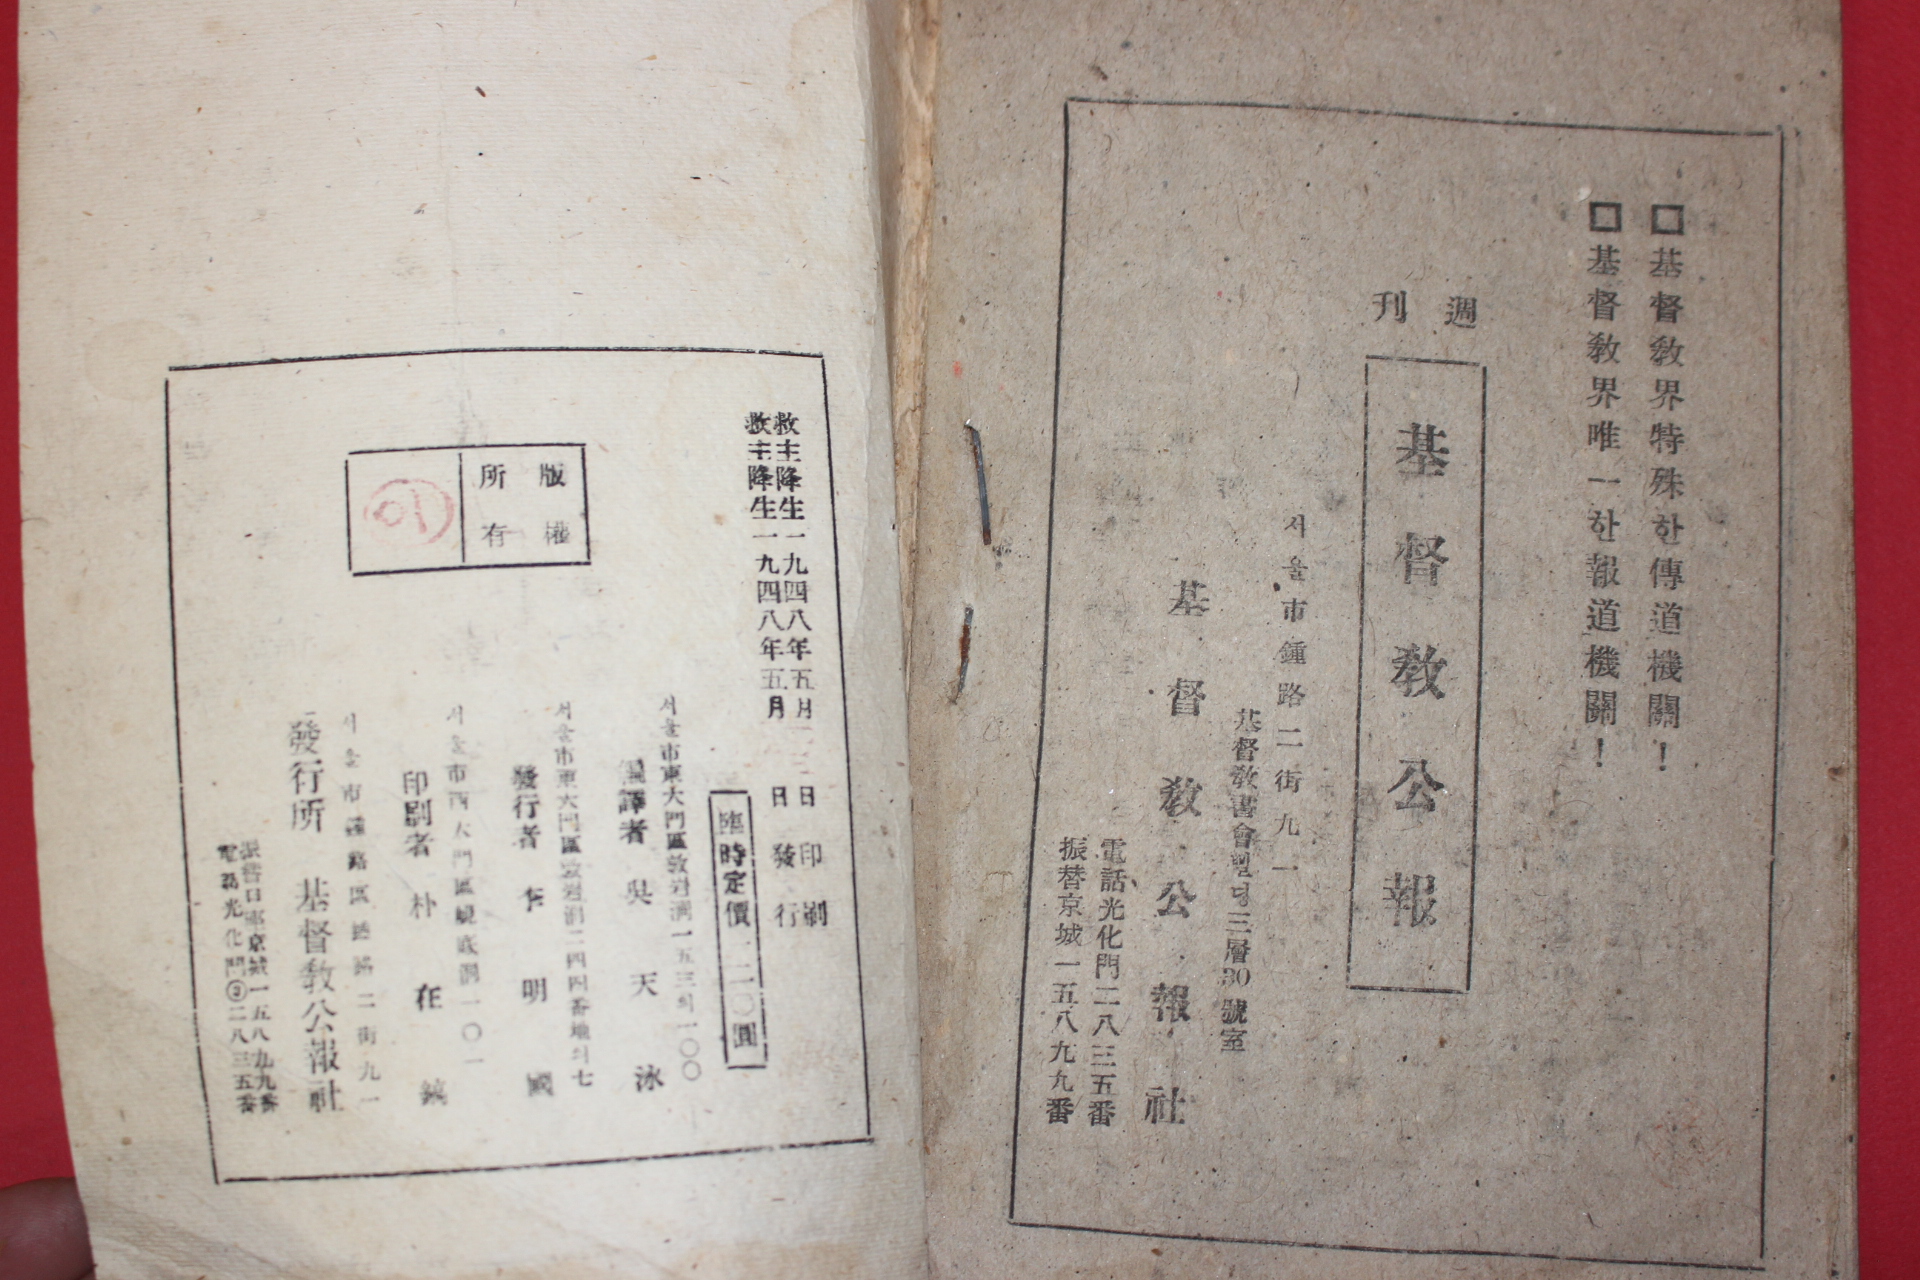 □基督敎界特殊한傳道機關！
□基督敎界唯一한報道機關！
週刊
基督敎公報
서울市鍾路二街九一
基督敎書會빌딩三層30號室
基督敎公報社
電話光化門二八三五番
振替京城一五八九九番
救主降生一九四八年五月 日印刷
救主降生一九四八年五月 日發行
臨時定價一二〇圓
서울市東大門區敦岩洞一五三의一〇〇
譯者 吳天泳
서울市東大門區敦岩洞二四四番地의七
發行者 李明國
서울市西大門區峴底洞一〇一
印刷者 朴在鎮
서울市鍾路區鍾路二街九一
發行所 基督敎公報社
振替口座京城一五八九九番
電話光化門③二八三五番
版權
所有